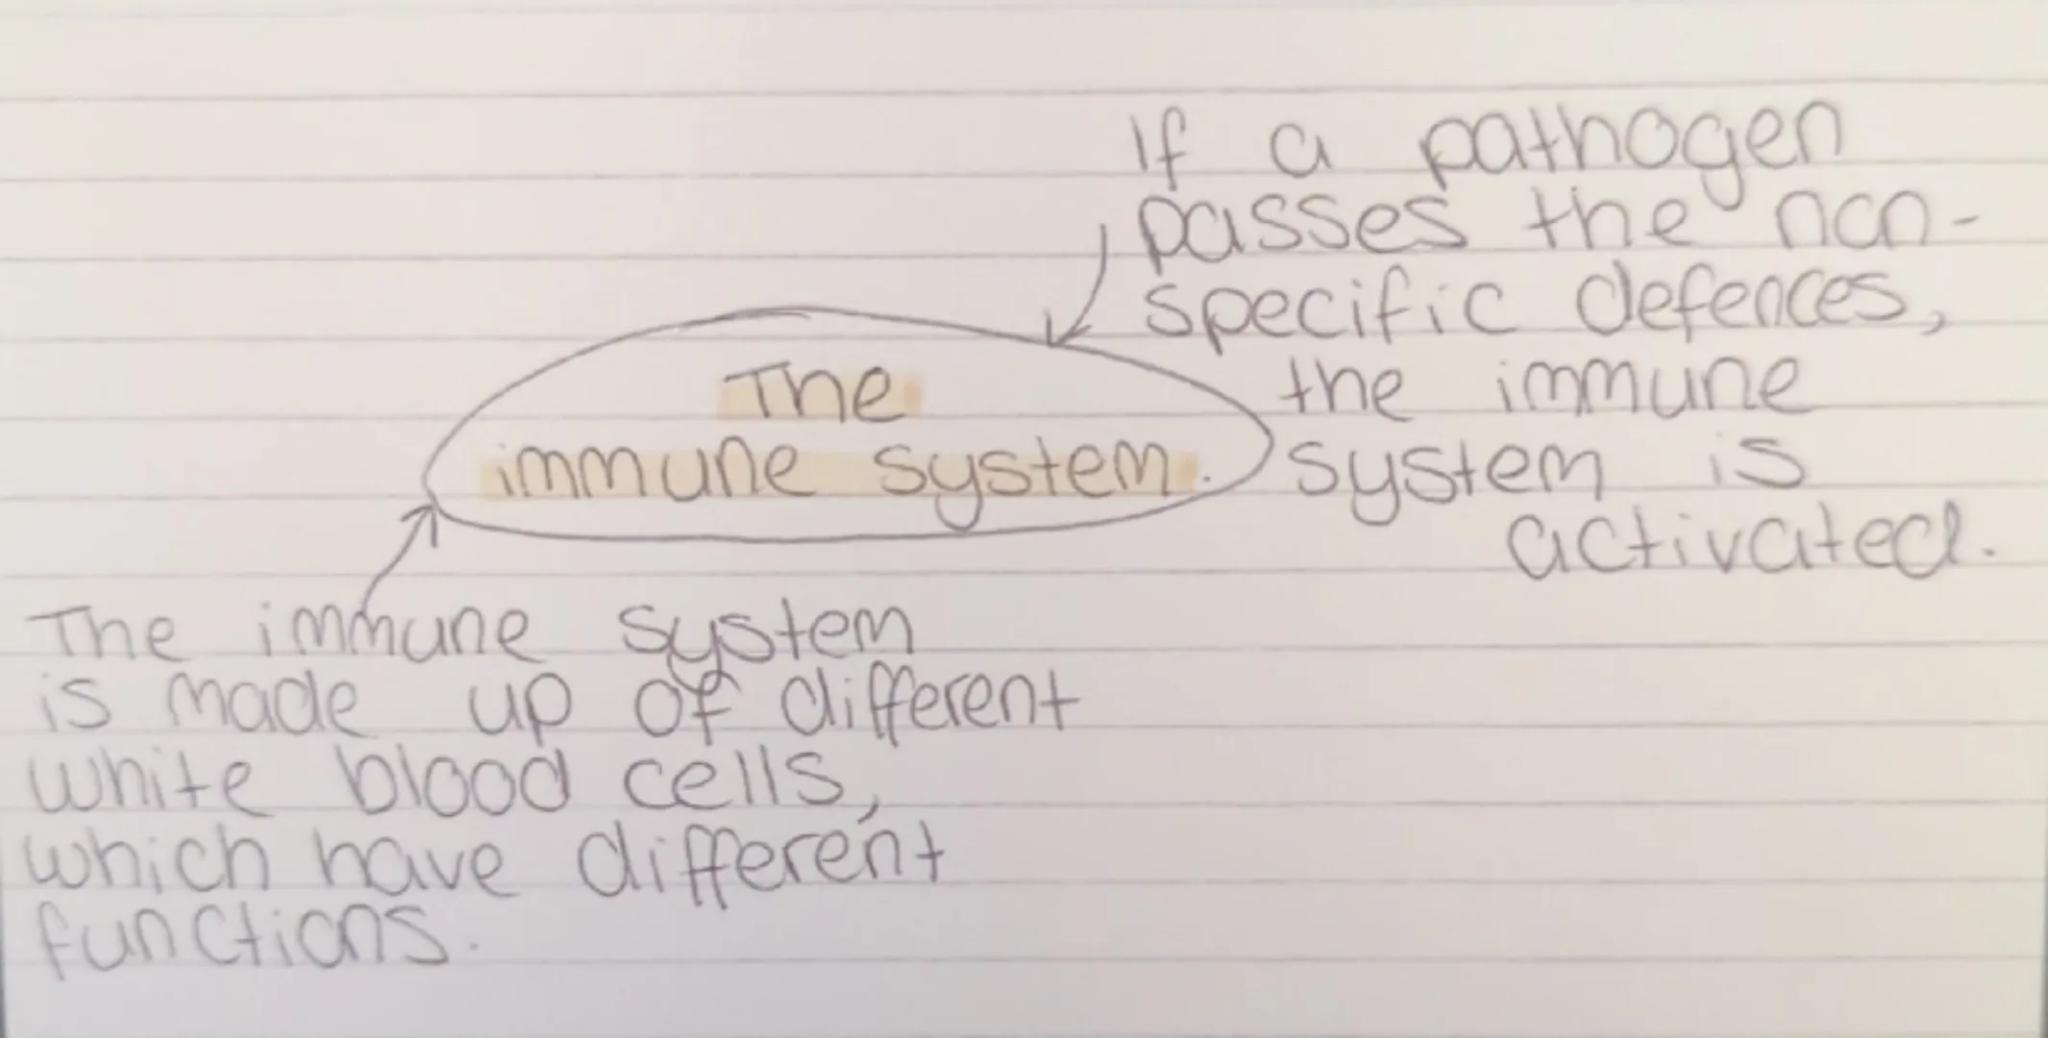 If a pathogen
passes the non-
specific defences,
the immune
system is
activated.
The
immune system.
The immune system
is made up of different
white blood cells,
which have different
functions.